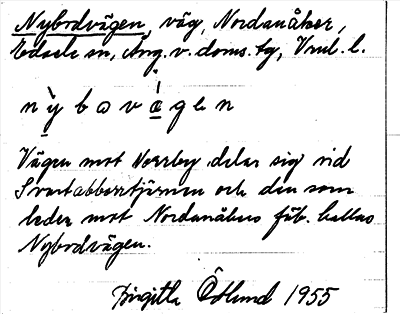 Nybodvägen, väg, Nordanåker,
Edsele sn, Ång. v. doms. tg, Vnl. l.
nỳbovägen
Vägen mot Norrby delar sig vid
Svartabborrtjärnen och den som
leder mot Nordanåkers fäb. kallas
Nybodvägen.
Birgitta Ödlund 1955